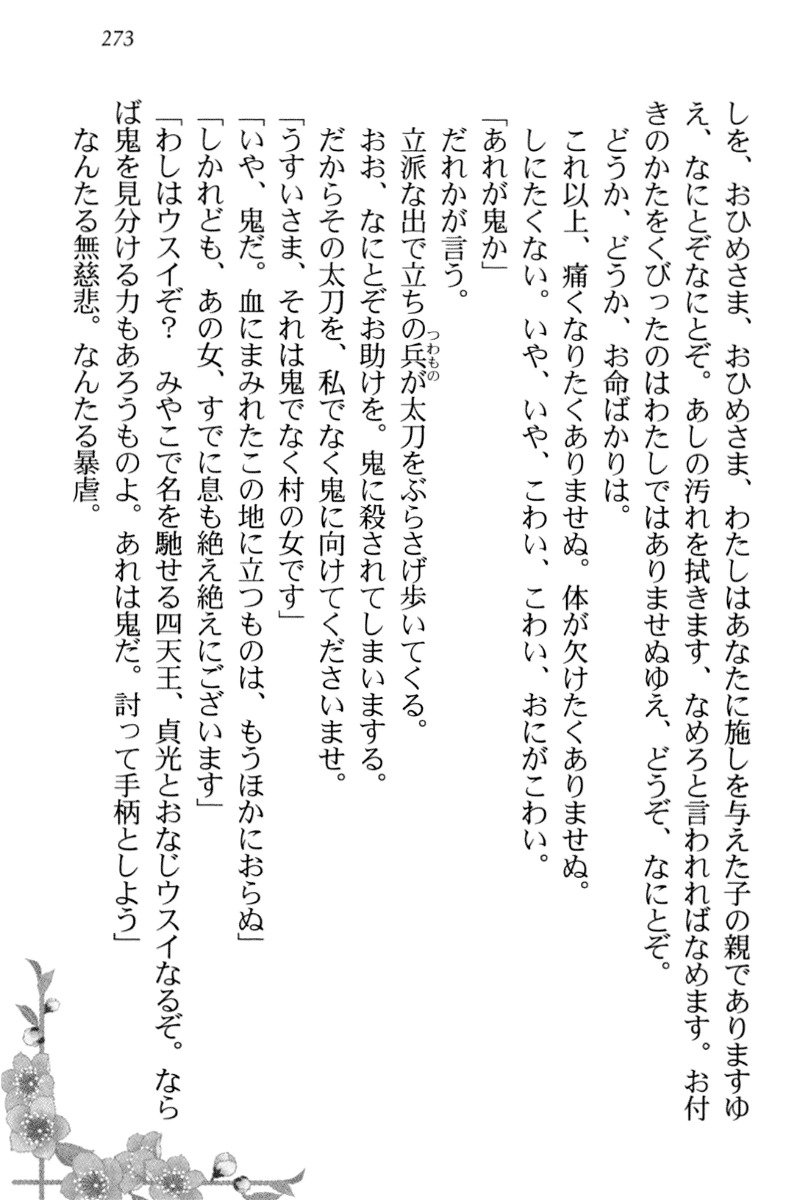 273
しを、おひめさま、おひめさま、わたしはあなたに施しを与えた子の親でありますゆ
え、なにとぞなにとぞ。あしの汚れを拭きます、なめろと言われればなめます。お付
きのかたをくびったのはわたしではありませぬゆえ、どうぞ、なにとぞ。
どうか、どうか、お命ばかりは。
これ以上、痛くなりたくありませぬ。体が欠けたくありませぬ。
しにたくない。いや、いや、こわい、こわい、おにがこわい。
「あれが鬼か」
だれかが言う。
立派な出で立ちの兵が太刀をぶらさげ歩いてくる。
つわもの
おお、なにとぞお助けを。鬼に殺されてしまいまする。
だからその太刀を、私でなく鬼に向けてくださいませ。
「うすいさま、それは鬼でなく村の女です」
「いや、鬼だ。血にまみれたこの地に立つものは、もうほかにおらぬ」
「しかれども、あの女、すでに息も絶え絶えにございます」
「わしはウスイぞ？　みやこで名を馳せる四天王、貞光とおなじウスイなるぞ。なら
ば鬼を見分ける力もあろうものよ。あれは鬼だ。討って手柄としよう」
なんたる無慈悲。なんたる暴虐。